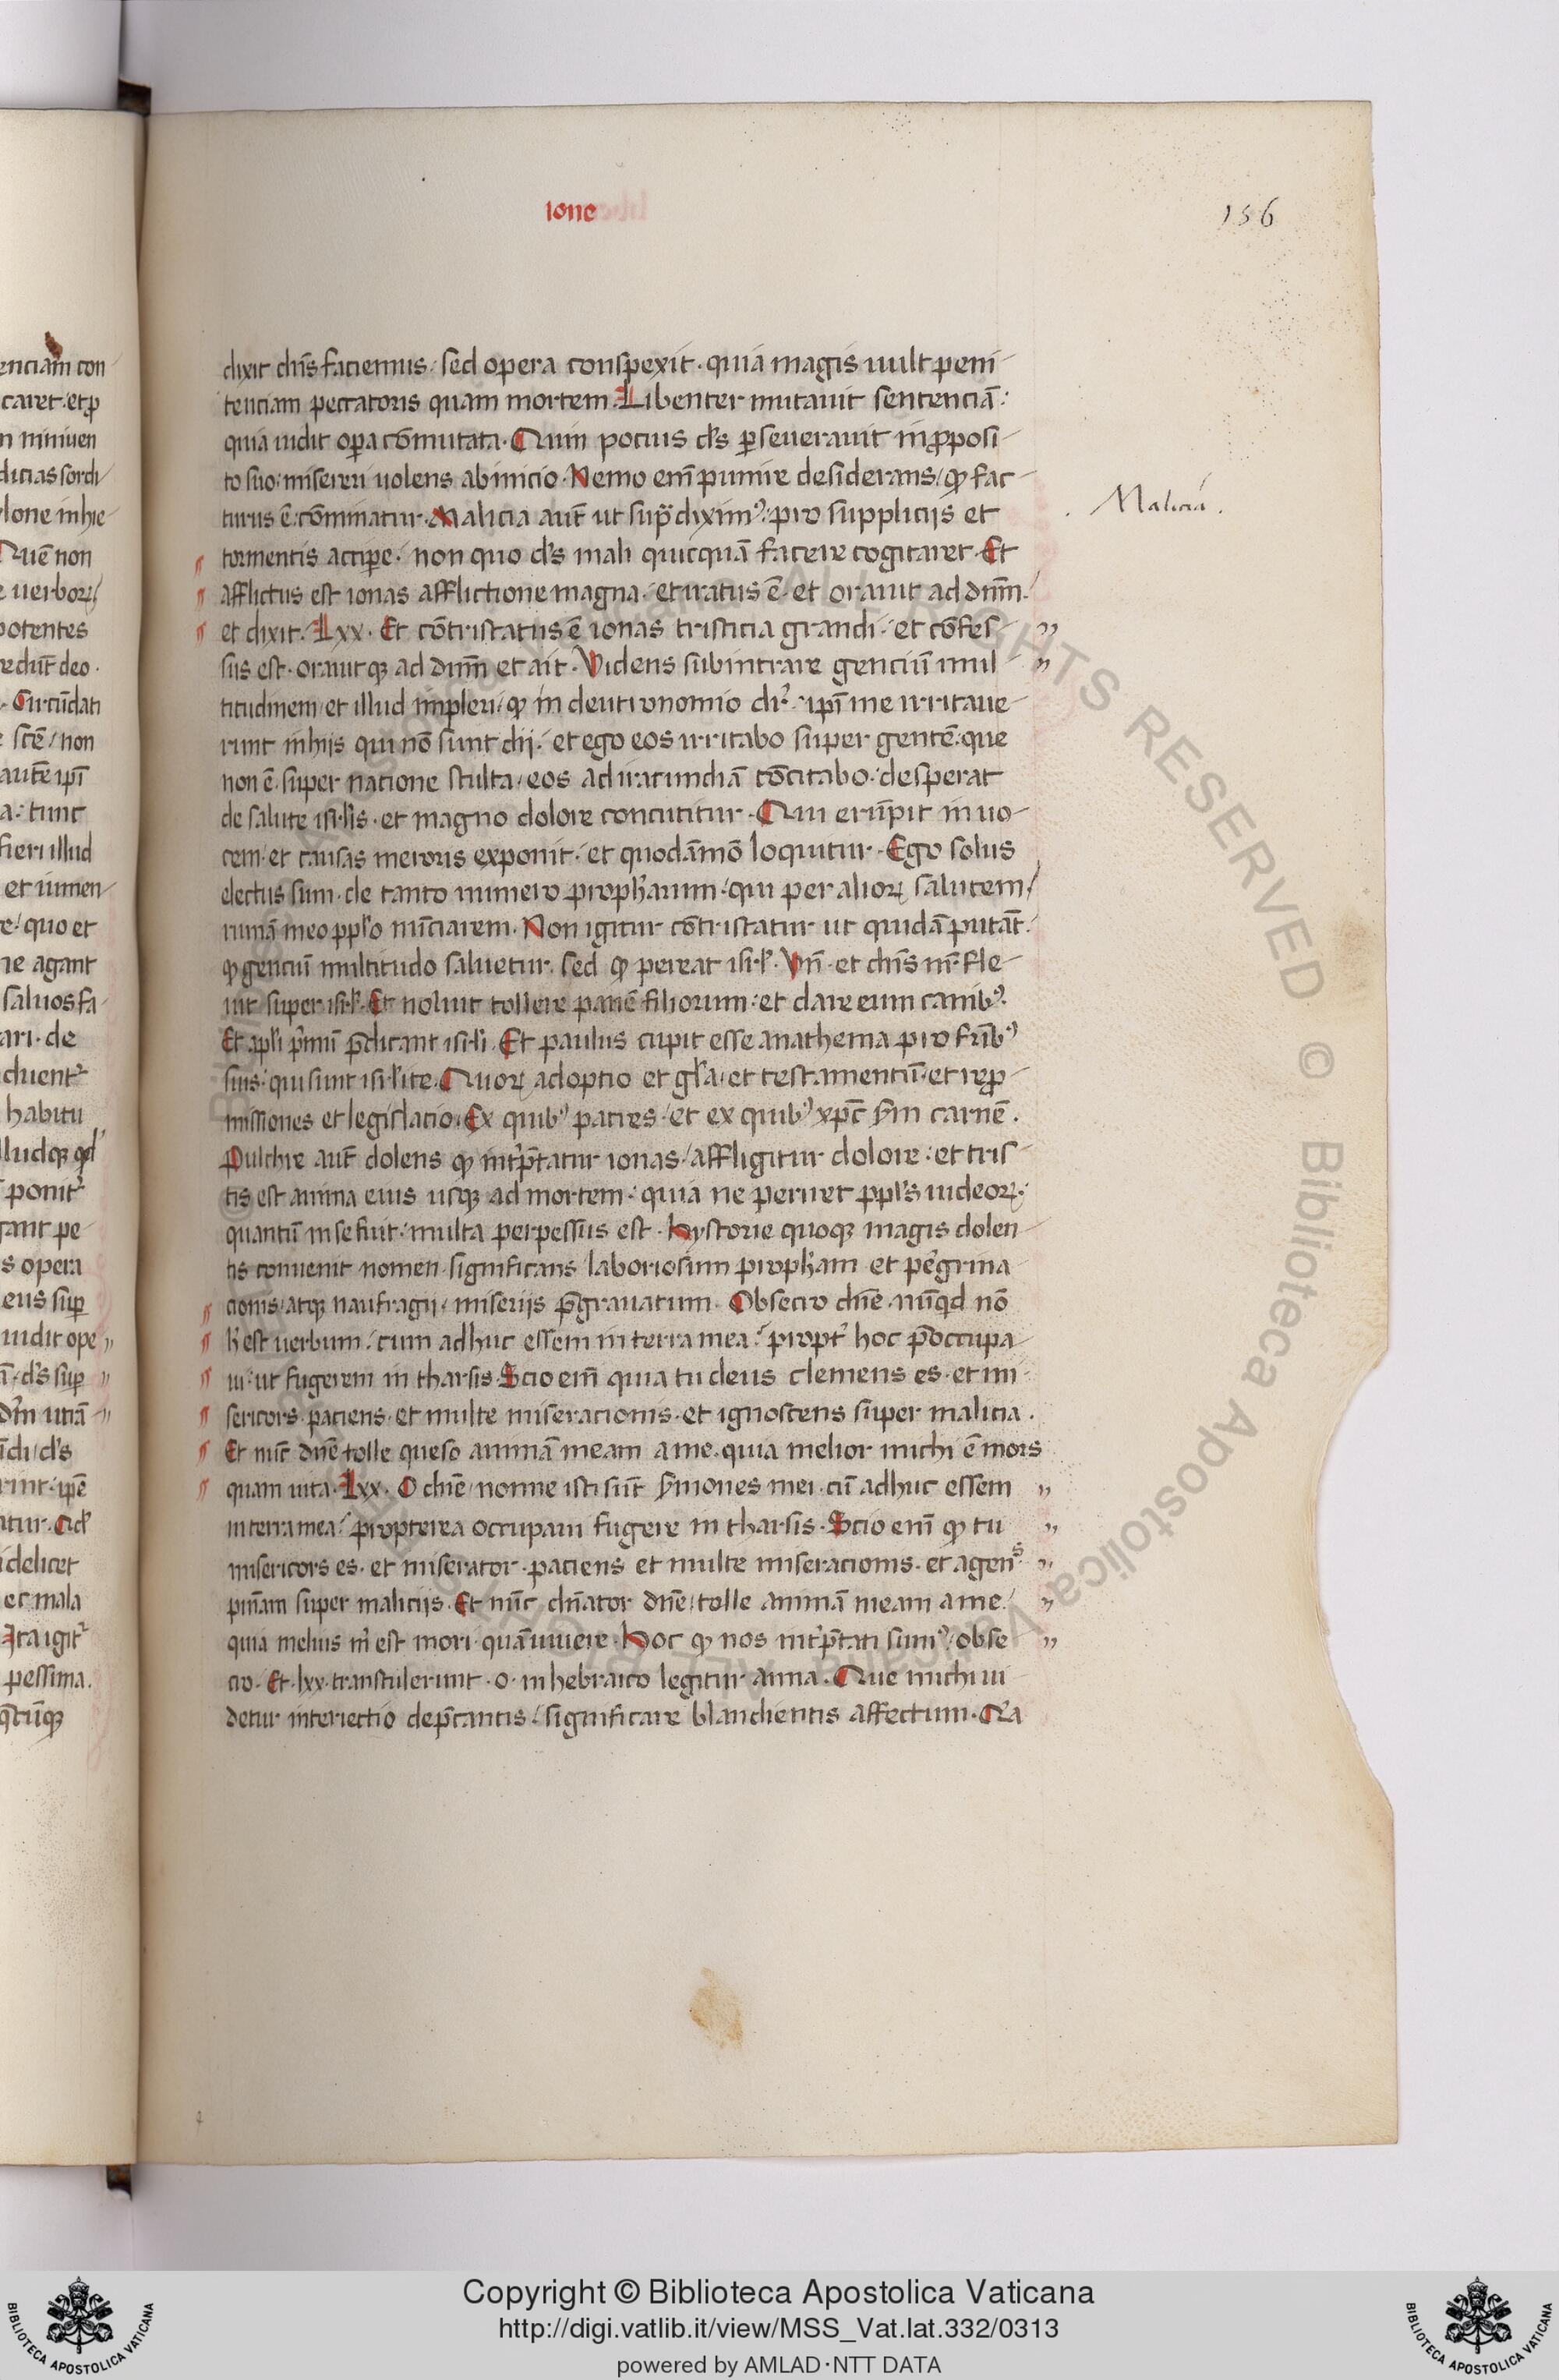 ione
156
dixit dn̄s faciemus. sed opera conspexit. quia magis uult peni-
tenciam peccatoris quam mortem. Libenter mutauit sentenciā:
quia uidit oꝑa cōmutata. Quin pocius ds̄ ꝑseuerauit in ꝓposi-
to suo. misereri uolens ab inicio. Nemo eni᷒ punire desiderans, ꝙ fac-
turus ē cominatur. Malicia aut̄ ut sup̄ diximꝰ: pro supplicijs et
Malicia.
tormentis accipe. non quo ds̄ mali quicquā facere cogitaret. Et
afflictus est ionas afflictione magna. et iratus ē. et orauit ad dn̄m.
et dixit. Lxx. Et cōtristatus ē ionas tristicia grandi. et cōfes-
sus est. orauitqꝫ ad dn̄m et ait. Videns subintrare genciū mul-
titudinem, et illud impleri, ꝙ in deutronomio dr̄. ip̄i me irritaue-
runt in hijs qui nō sunt dij. et ego eos irritabo super gentē: que
non ē. super natione stulta, eos ad iracundiā cōcitabo. desperat
de salute isrl̄is. et magno dolore concutitur. Qui erūpit in uo-
cem. et causas meroris exponit. et quodāmō loquitur. Ego solus
electus sum. de tanto numero proph̄arum. qui per alioꝝ salutem,
ruinā meo ppl̄o nūciarem. Non igitur cōtristatur ut quidā putāt.
ꝙ genciū multitudo saluetur. sed ꝙ pereat isrl̄. Vn̄. et dn̄s nr̄ fle-
uit super isrl̄. Et noluit tollere panē filiorum. et dare eum canibꝰ.
Et apl̄i p̄mū p̄dicant isrl̄i. Et paulus cupit esse anathema pro fr̄ibꝰ
suis. qui sunt isrl̄ite. Quoꝝ adoptio et gl̄a. et testamentū. et reꝓ-
missiones et legislacio. Ex quibꝰ patres. et ex quibꝰ xp̄c s̄m carnē.
Pulchre aut̄ dolens ꝙ int̄p̄tatur ionas, affligitur dolore. et tris-
tis est anima eius usqꝫ ad mortem. quia ne periret ppl̄s iudeoꝝ.
quantū in se fuit. multa perpessus est. Hystorie quoqꝫ magis dolen-
tis conuenit nomen. significans laboriosum proph̄am et peregrina-
cionis, atqꝫ naufragij, miserijs p̄grauatum. Obsecro dn̄e. nūqd nō
h̄ est uerbum, cum adhuc essem in terra mea. propt̄ hoc p̄occupa-
ui. ut fugerem in tharsis. Scio eni᷒ quia tu deus clemens es. et mi-
sericors. paciens. et multe miseracionis. et ignoscens super malicia.
Et nūc dn̄e tolle queso animā meam a me. quia melior michi ē mors
quam uita. Lxx. O dn̄e, nonne isti sūt s̄mones mei. cū adhuc essem
in terra mea. propterea occupaui fugere in tharsis. Scio eni᷒ ꝙ tu
misericors es. et miserator. paciens et multe miseracionis. et agens
pn̄iam super malicijs. Et nūc dn̄ator dn̄e, tolle animā meam a me.
quia melius m̄ est mori. quā uiuere. Hoc ꝙ nos int̄p̄tati sumꝰ, obse-
cro. Et lxx. transtulerunt. o. in hebraico legitur anna. Que michi ui-
detur interiectio dep̄cantis, significare blandientis affectum. Na
Copyright © Biblioteca Apostolica Vaticana
http://digi.vatlib.it/view/MSS_Vat.lat.332/0313
powered by AMLAD·NTT DATA